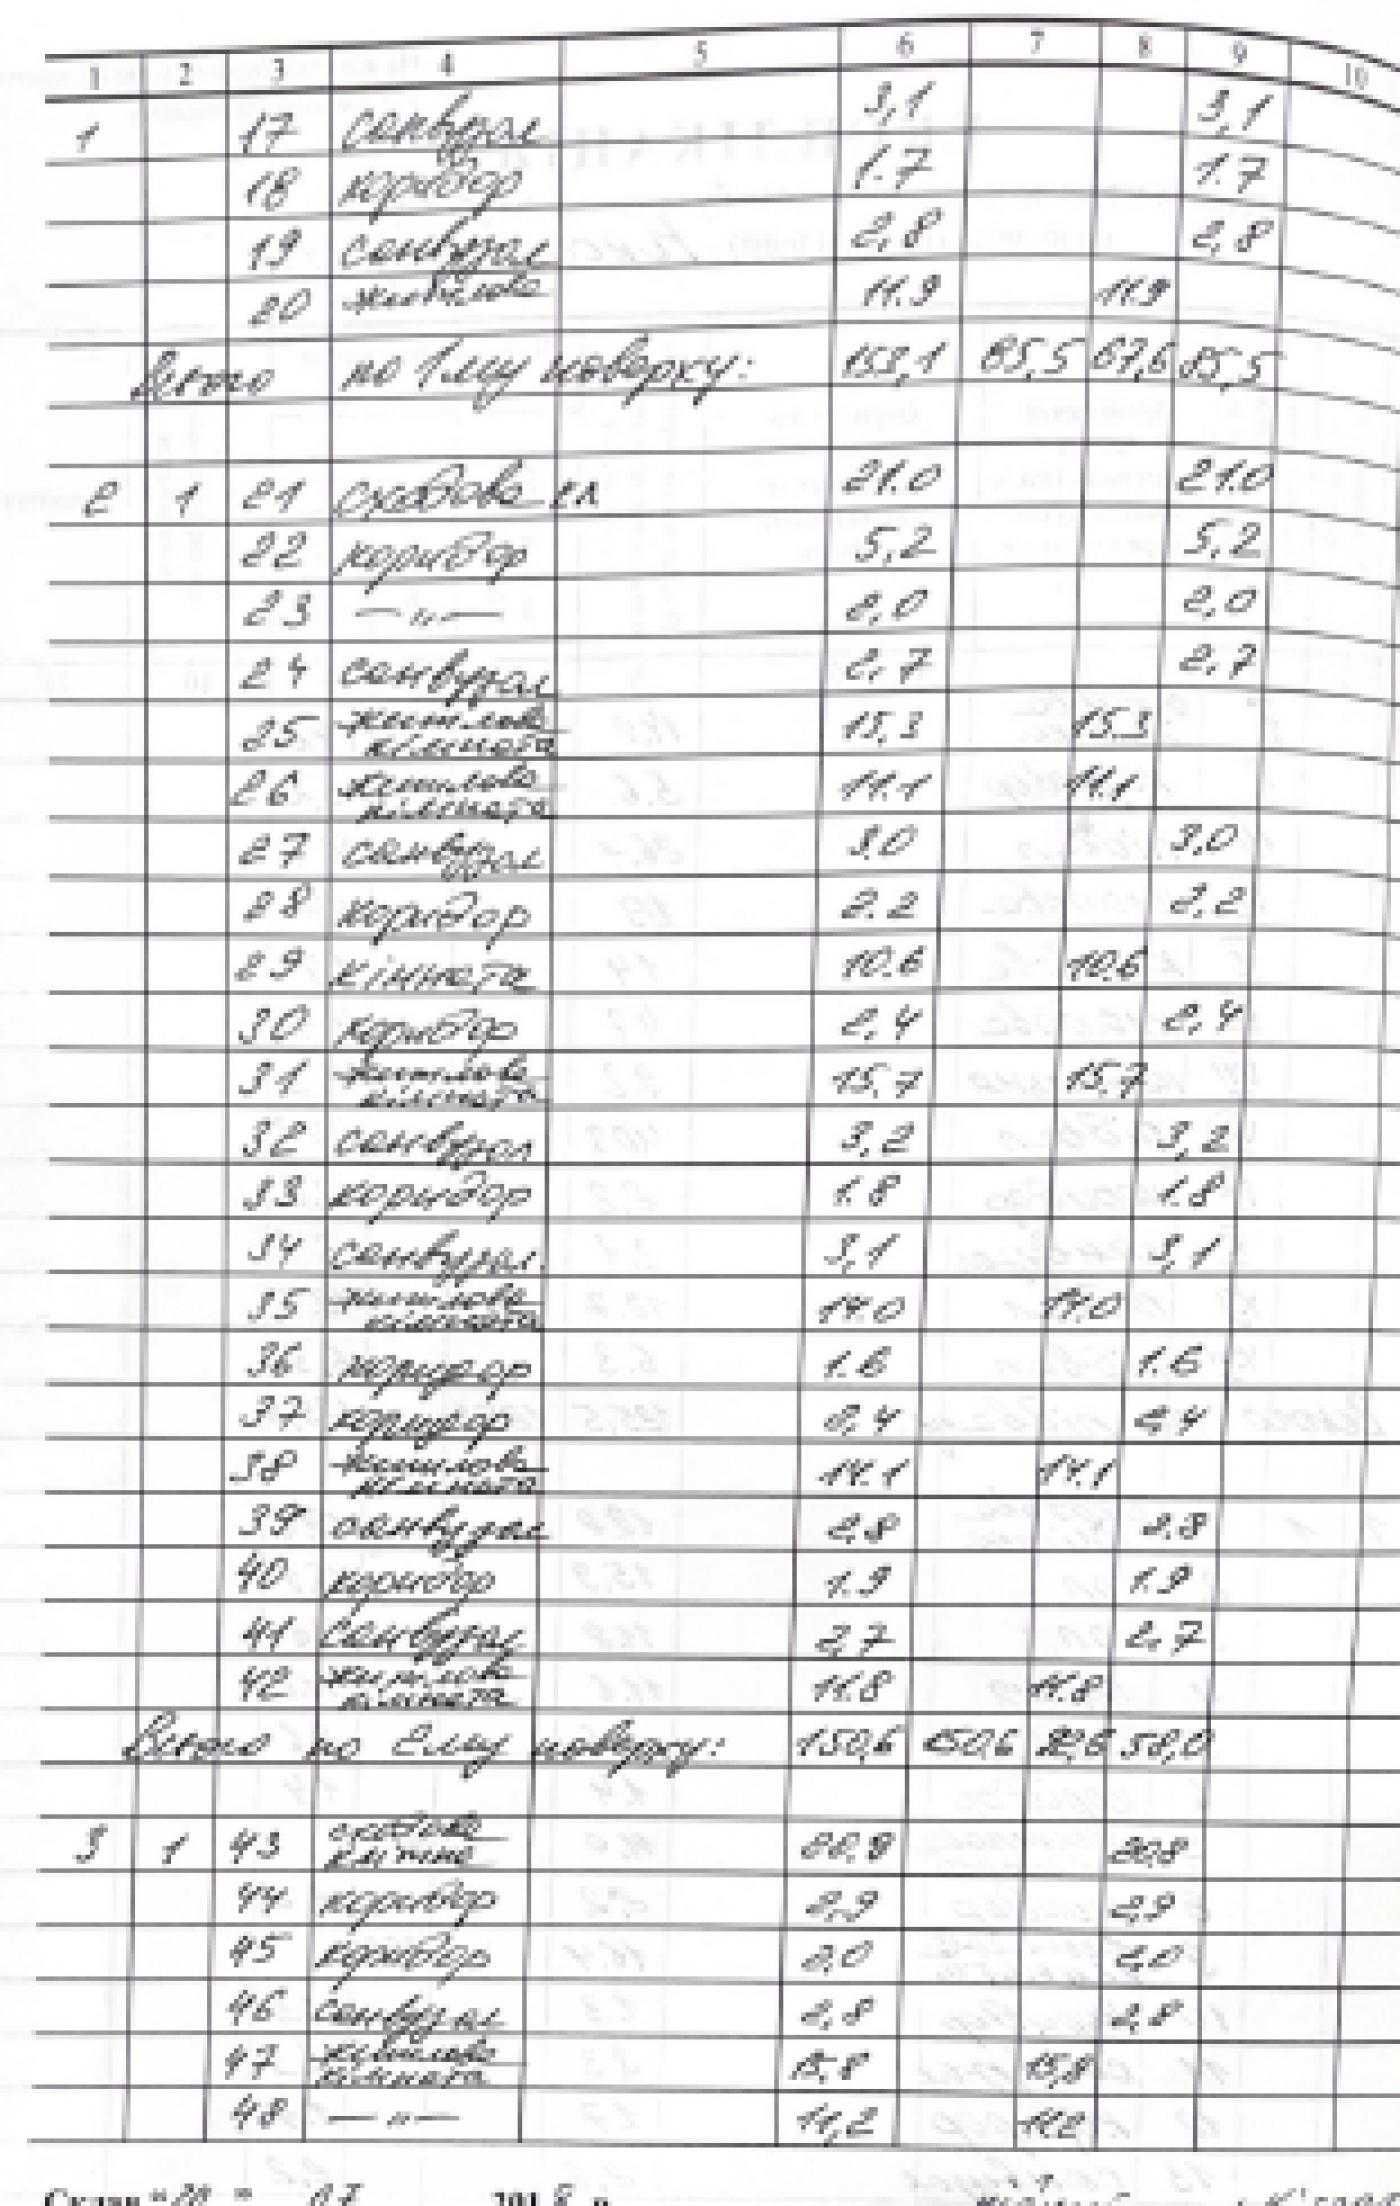 1 2 3 4 5 6 7 8 9 10
1 17 санвузол 3,1 3,1
18 коридор 1.7 1.7
19 санвузол 2,8 2,8
20 житлова 11.9 11.9
Всього по 1му поверху: 153,1 67,6 85,5
2 1 21 сходова кл 21.0 21.0
22 коридор 5,2 5,2
23 — „ — 2,0 2,0
24 санвузол 2,7 2,7
25 житлова кімната 15,3 15.3
26 житлова кімната 11.1 11.1
27 санвузол 3.0 3,0
28 коридор 2.2 2,2
29 кімната 10.6 10.6
30 коридор 2,4 2,4
31 житлова кімната 15,7 15,7
32 санвузол 3,2 3,2
33 коридор 1.8 1.8
34 санвузол 3,1 3,1
35 житлова кімната 14.0 14.0
36 коридор 1.6 1.6
37 коридор 2,4 2,4
38 житлова кімната 14.1 14.1
39 санвузол 2,8 2,8
40 коридор 1.9 1.9
41 санвузол 2,7 2,7
42 житлова кімната 11.8 11.8
Всього по 2му поверху: 150,6 150,6 92,6 58,0
3 1 43 сходова клітина 20,8 20,8
44 коридор 2,9 2,9
45 коридор 2,0 2,0
46 санвузол 2,8 2,8
47 житлова кімната 15,8 15,8
48 — „ — 11,2 11,2